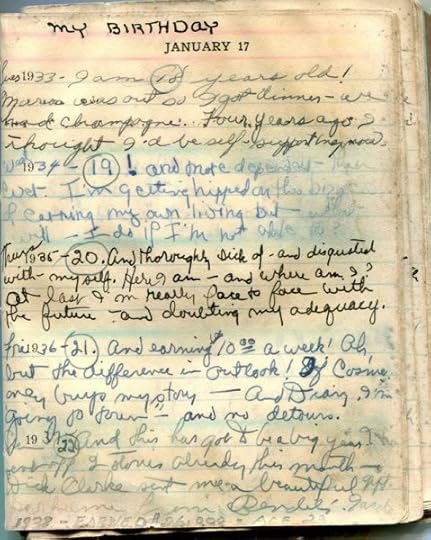 MY BIRTHDAY
JANUARY 17
1933 - I am 18 years old!
Marica was out so I got dinner - we
had champagne.. Four years ago I
thought I'd be self-supporting now.
1934 - 19! and more dependent than
ever. I'm getting hipped on this
of earning my own living but - what
will - I do if I'm not able to?
Thurs 1935 - 20. And thoroughly sick of - and disgusted
with - myself. Here I am - and where am I?
At last I'm really face to face with
the future - and doubting my adequacy.
Fri 1936 - 21. And earning 10 00 a week! Oh,
but the difference in outlook! If Cosmo
only buys my story - And Diary, I'm
going to town - and no detours.
1937 22 And this has got to be a big year. I
sent off 2 stories already this month -
Dick Clarke sent me a beautiful
from Bendel's.
1938 - EARNED